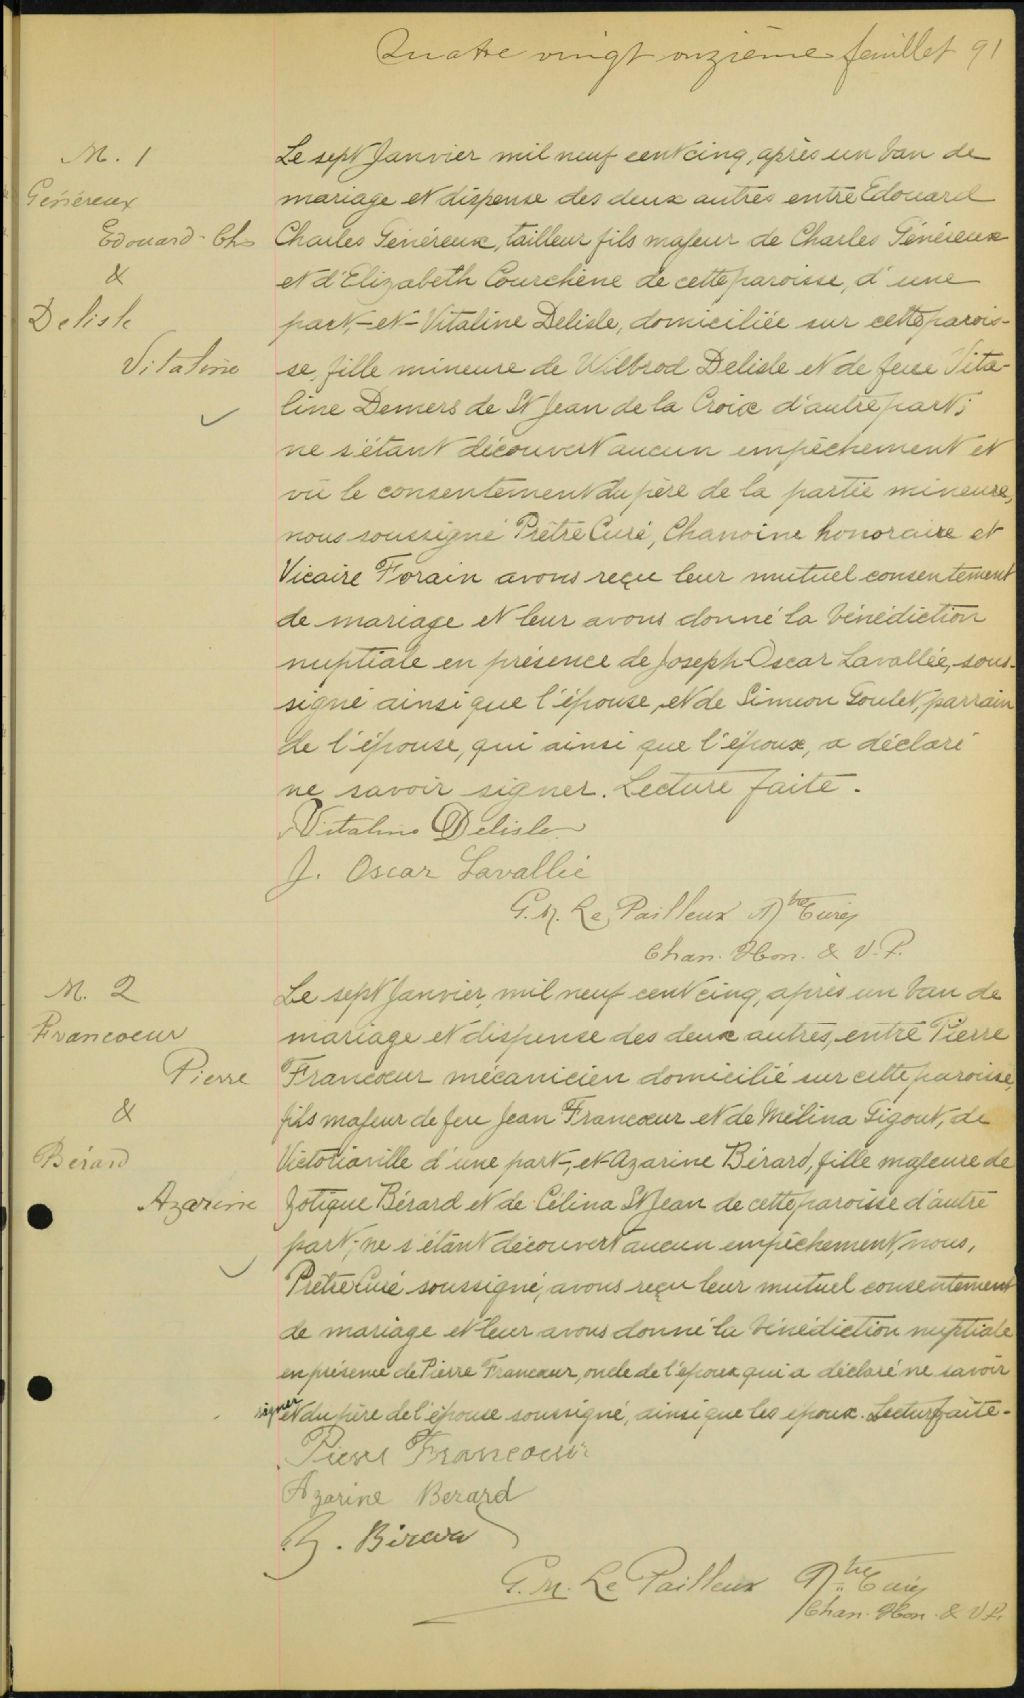 Quatre vingt onzième feuillet 91
M. 1
Généreux
Edouard-Chs
&
Delisle
Vitaline
Le sept Janvier mil neuf cent cinq, après un ban de
mariage et dispense des deux autres entre Edouard
Charles Généreux, tailleur fils majeur de Charles Généreux
et d'Elizabeth Courchène de cette paroisse, d'une
part,-et-Vitaline Delisle, domiciliée sur cette parois-
se, fille mineure de Wilbrod Delisle et de feue Vita-
line Demers de St Jean de la Croix d'autre part;
ne s'étant découvert aucun empêchement et
vu le consentement du père de la partie mineure,
nous soussigné Prêtre Curé, Chanoine honoraire et
Vicaire Forain avons reçu leur mutuel consentement
de mariage et leur avons donné la bénédiction
nuptiale en présence de Joseph-Oscar Lavallée, sous-
signé ainsi que l'épouse, et de Simeon Goulet, parrain
de l'épouse, qui ainsi que l'époux, a déclaré
ne savoir signer. Lecture faite.
Vitaline Delisle
J. Oscar Lavallée
G. M. Le Pailleux Ptre Curé
Chan. Hon. & V. F.
M. 2
Francoeur
Pierre
&
Bérard
Azarine
Le sept Janvier, mil neuf cent cinq, après un ban de
mariage et dispense des deux autres, entre Pierre
Francœur mécanicien domicilié sur cette paroisse,
fils majeur de feu Jean Francœur et de Mélina Gigout, de
Victoriaville d'une part,-et-Azarine Bérard, fille majeure de
Zotique Bérard et de Célina St Jean de cette paroisse d'autre
part; ne s'étant découvert aucun empêchement, nous,
Prêtre Curé soussigné, avons reçu leur mutuel consentement
de mariage et leur avons donné la bénédiction nuptiale
en présence de Pierre Francœur, oncle de l'époux qui a déclaré ne savoir
signer et du père de l'épouse soussigné, ainsi que les époux. Lecture faite.
Pierre Francoeur
Azarine Berard
Z. Birard
G. M. Le Pailleux Ptre Curé
Chan. Hon. & V. F.